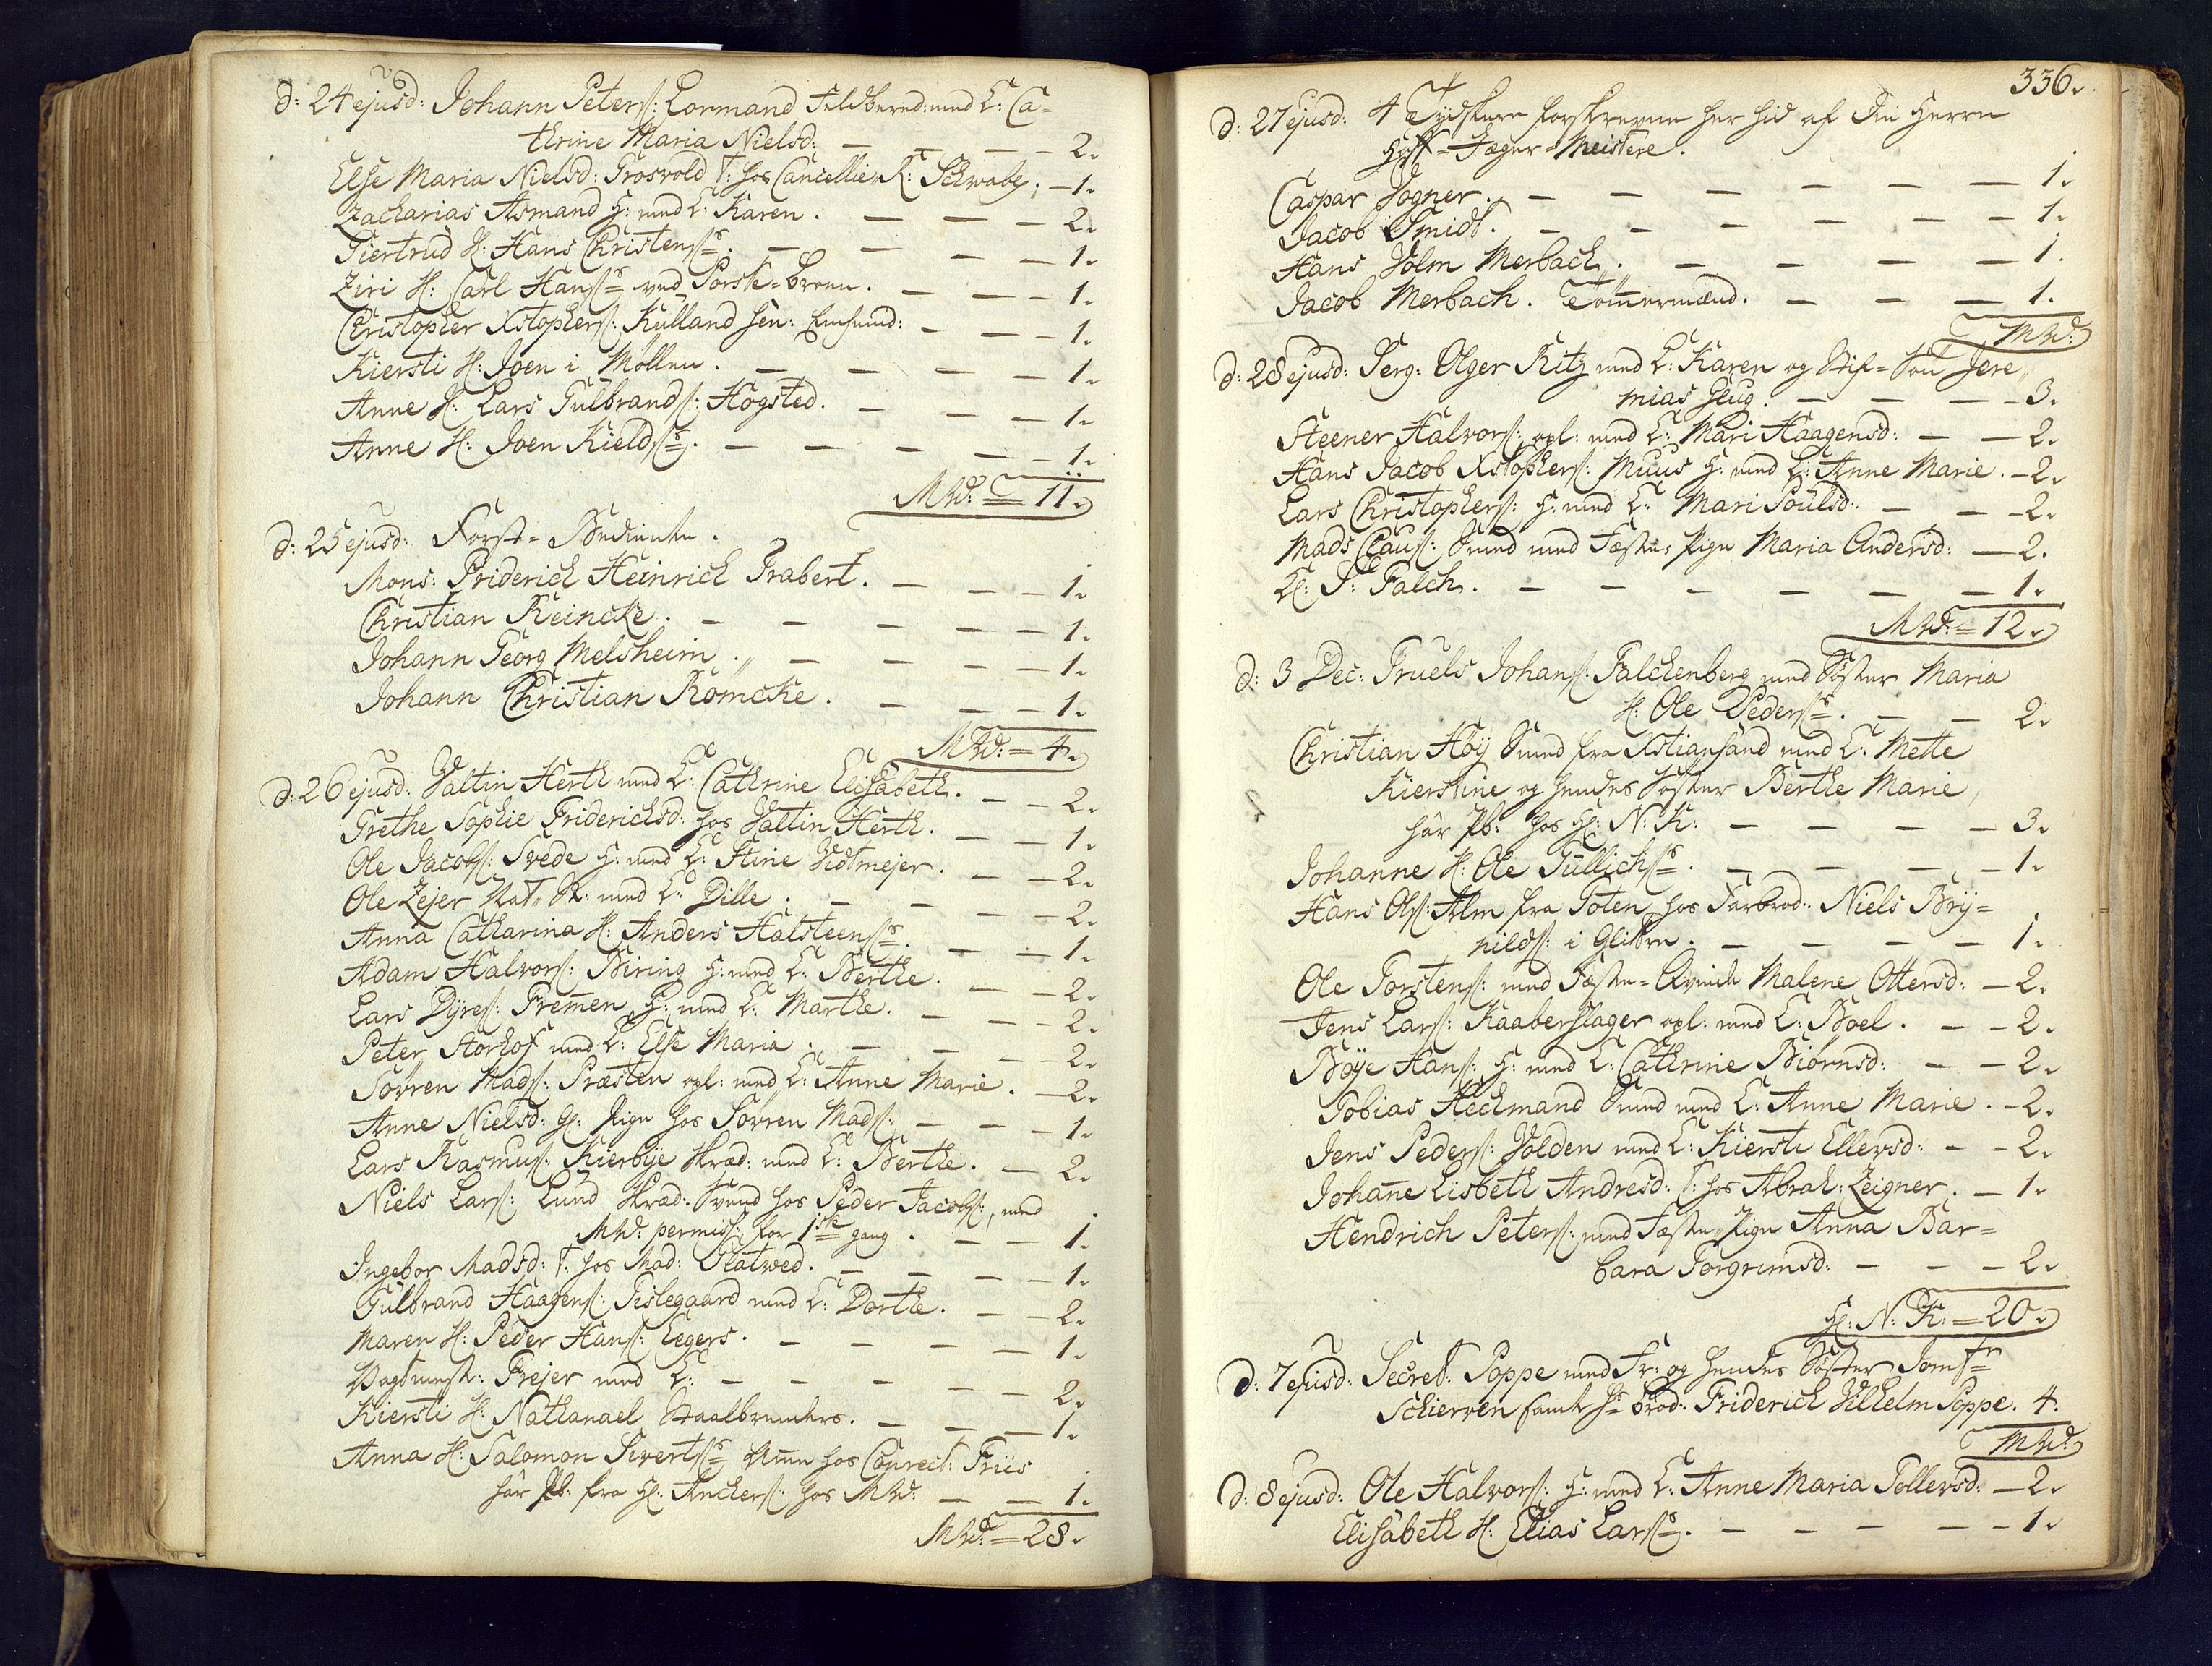 d: 24 ejusd: Johann Peters: Lormand Feldbered: med L: Ca-
thrine Maria Nielsd: — 2.
Else Maria Nielsd: Grosvold T: hos Cancellie R: Schwabe. — 1.
Zacharias Asmand H: med L: Karen. — 2.
Giertrud H: Hans Christens: — 1.
Ziri H: Carl Hans: ved Porse-broen. — 1.
Christopher Xstophers: Kulland — 1.
Kiersti H: Joen i Møllen. — 1.
Anne H: Lars Gulbrands: Hogsted. — 1.
Anne H: Joen Kields: — 1.
MRd: = 11.
d: 25 ejusd: Forst-Bediente.
Mons: Friderich Heinrich Trabert. — 1.
Christian Reincke. — 1.
Johann Georg Melsheim. — 1.
Johann Christian Römcke. — 1.
MRd: = 4.
d: 26 ejusd: Valtin Herth med L: Cathrine Elisabeth. — 2.
Grethe Sophie Friderichsd: hos Valtin Herth. — 1.
Ole Jacobs: Svede H: med L: Stine Vidtmejer. — 2.
Ole Zejer Nat. med L: Dille. — 2.
Anna Catharina H: Anders Halsteens: — 1.
Adam Halvors: Biring H: med L: Berthe. — 2.
Lars Dyres: Fremen H: med L: Marthe. — 2.
Peter Storhof med L: Else Maria. — 2.
Sövren Mads: Præsten opl: med L: Anne Marie. — 2.
Anne Nielsd: Gl: Pige hos Sövren Mads: — 1.
Lars Rasmus: Kierbye Skræd: med L: Berthe. — 2.
Niels Lars: Lund Skræd: Svend hos Peder Jacobs:, med
MRd: permiss: for 1ste gang. — 1.
Ingebor Madsd: T: hos Mad: Flatwed. — 1.
Gulbrand Haagens: Gislegaard med L: Dorthe. — 2.
Maren H: Peder Hans: Eegers. — 1.
Vagtmest: Frejer med L: — 2.
Kiersti H: Nathanael Staalbrenders. — 1.
Anna H: Salomon Siverts: Amme hos Conrect: Friis
här Pb: fra H: Anchers: hos MRd: — 1.
MRd: = 28.
336.
d: 27 ejusd: 4 Tydskere forskrevne her hid af die Herrn
Hoff-Jæger-Meistere.
Caspar Vogner. — 1.
Jacob Smidt. — 1.
Hans Volm Merbach. — 1.
Jacob Merbach. Tömermænd. — 1.
MRd:
d: 28 ejusd: Serg: Olger Ritz med L: Karen og Stif-Søn Jere-
mias — 3.
Steener Halvors: opl: med L: Mari Haagensd: — 2.
Hans Jacob Xstophers: Muus H: med L: Anne Marie. — 2.
Lars Christophers: H: med L: Mari Poulsd: — 2.
Mads Claus: Svend med Fæste Pige Maria Andersd: — 2.
Falch. — 1.
MRd: = 12.
d: 3 Dec: Truels Johans: Falchenberg med Søster Maria
H: Ole Peders: — 2.
Christian Höy Svend fra Xstiansand med L: Mette
Kierstine og hendes Søster Berthe Marie,
här Pb: hos H: N: K: — 3.
Johanne H: Ole Gullichs: — 1.
Hans Ols: Alm fra Toten hos Farbrod: Niels Bry-
nilds: i Gliten. — 1.
Ole Torstens: med Fæste-Qvinde Malene Ottersd: — 2.
Jens Lars: Kaaberslager opl: med L: Boel. — 2.
Böye Hans: H: med L: Cathrine Biörnsd: — 2.
Tobias Heckmand Svend med L: Anne Marie. — 2.
Jens Peders: Volden med L: Kiersti Ellevsd: — 2.
Johane Lisbeth Andresd: T: hos Abrah: Zeigner. — 1.
Hendrich Peters: med Fæste Pige Anna Bar-
bara Torgrimsd: — 2.
H: N: K: = 20.
d: 7 ejusd: Secret: Poppe med Fr: og hendes Søster Jomfr
Schierven samt hs Brod: Friderich Vilhelm Poppe. 4.
MRd:
d: 8 ejusd: Ole Halvors: H: med L: Anne Maria Tollevsd: — 2.
Elisabeth H: Elias Lars: — 1.